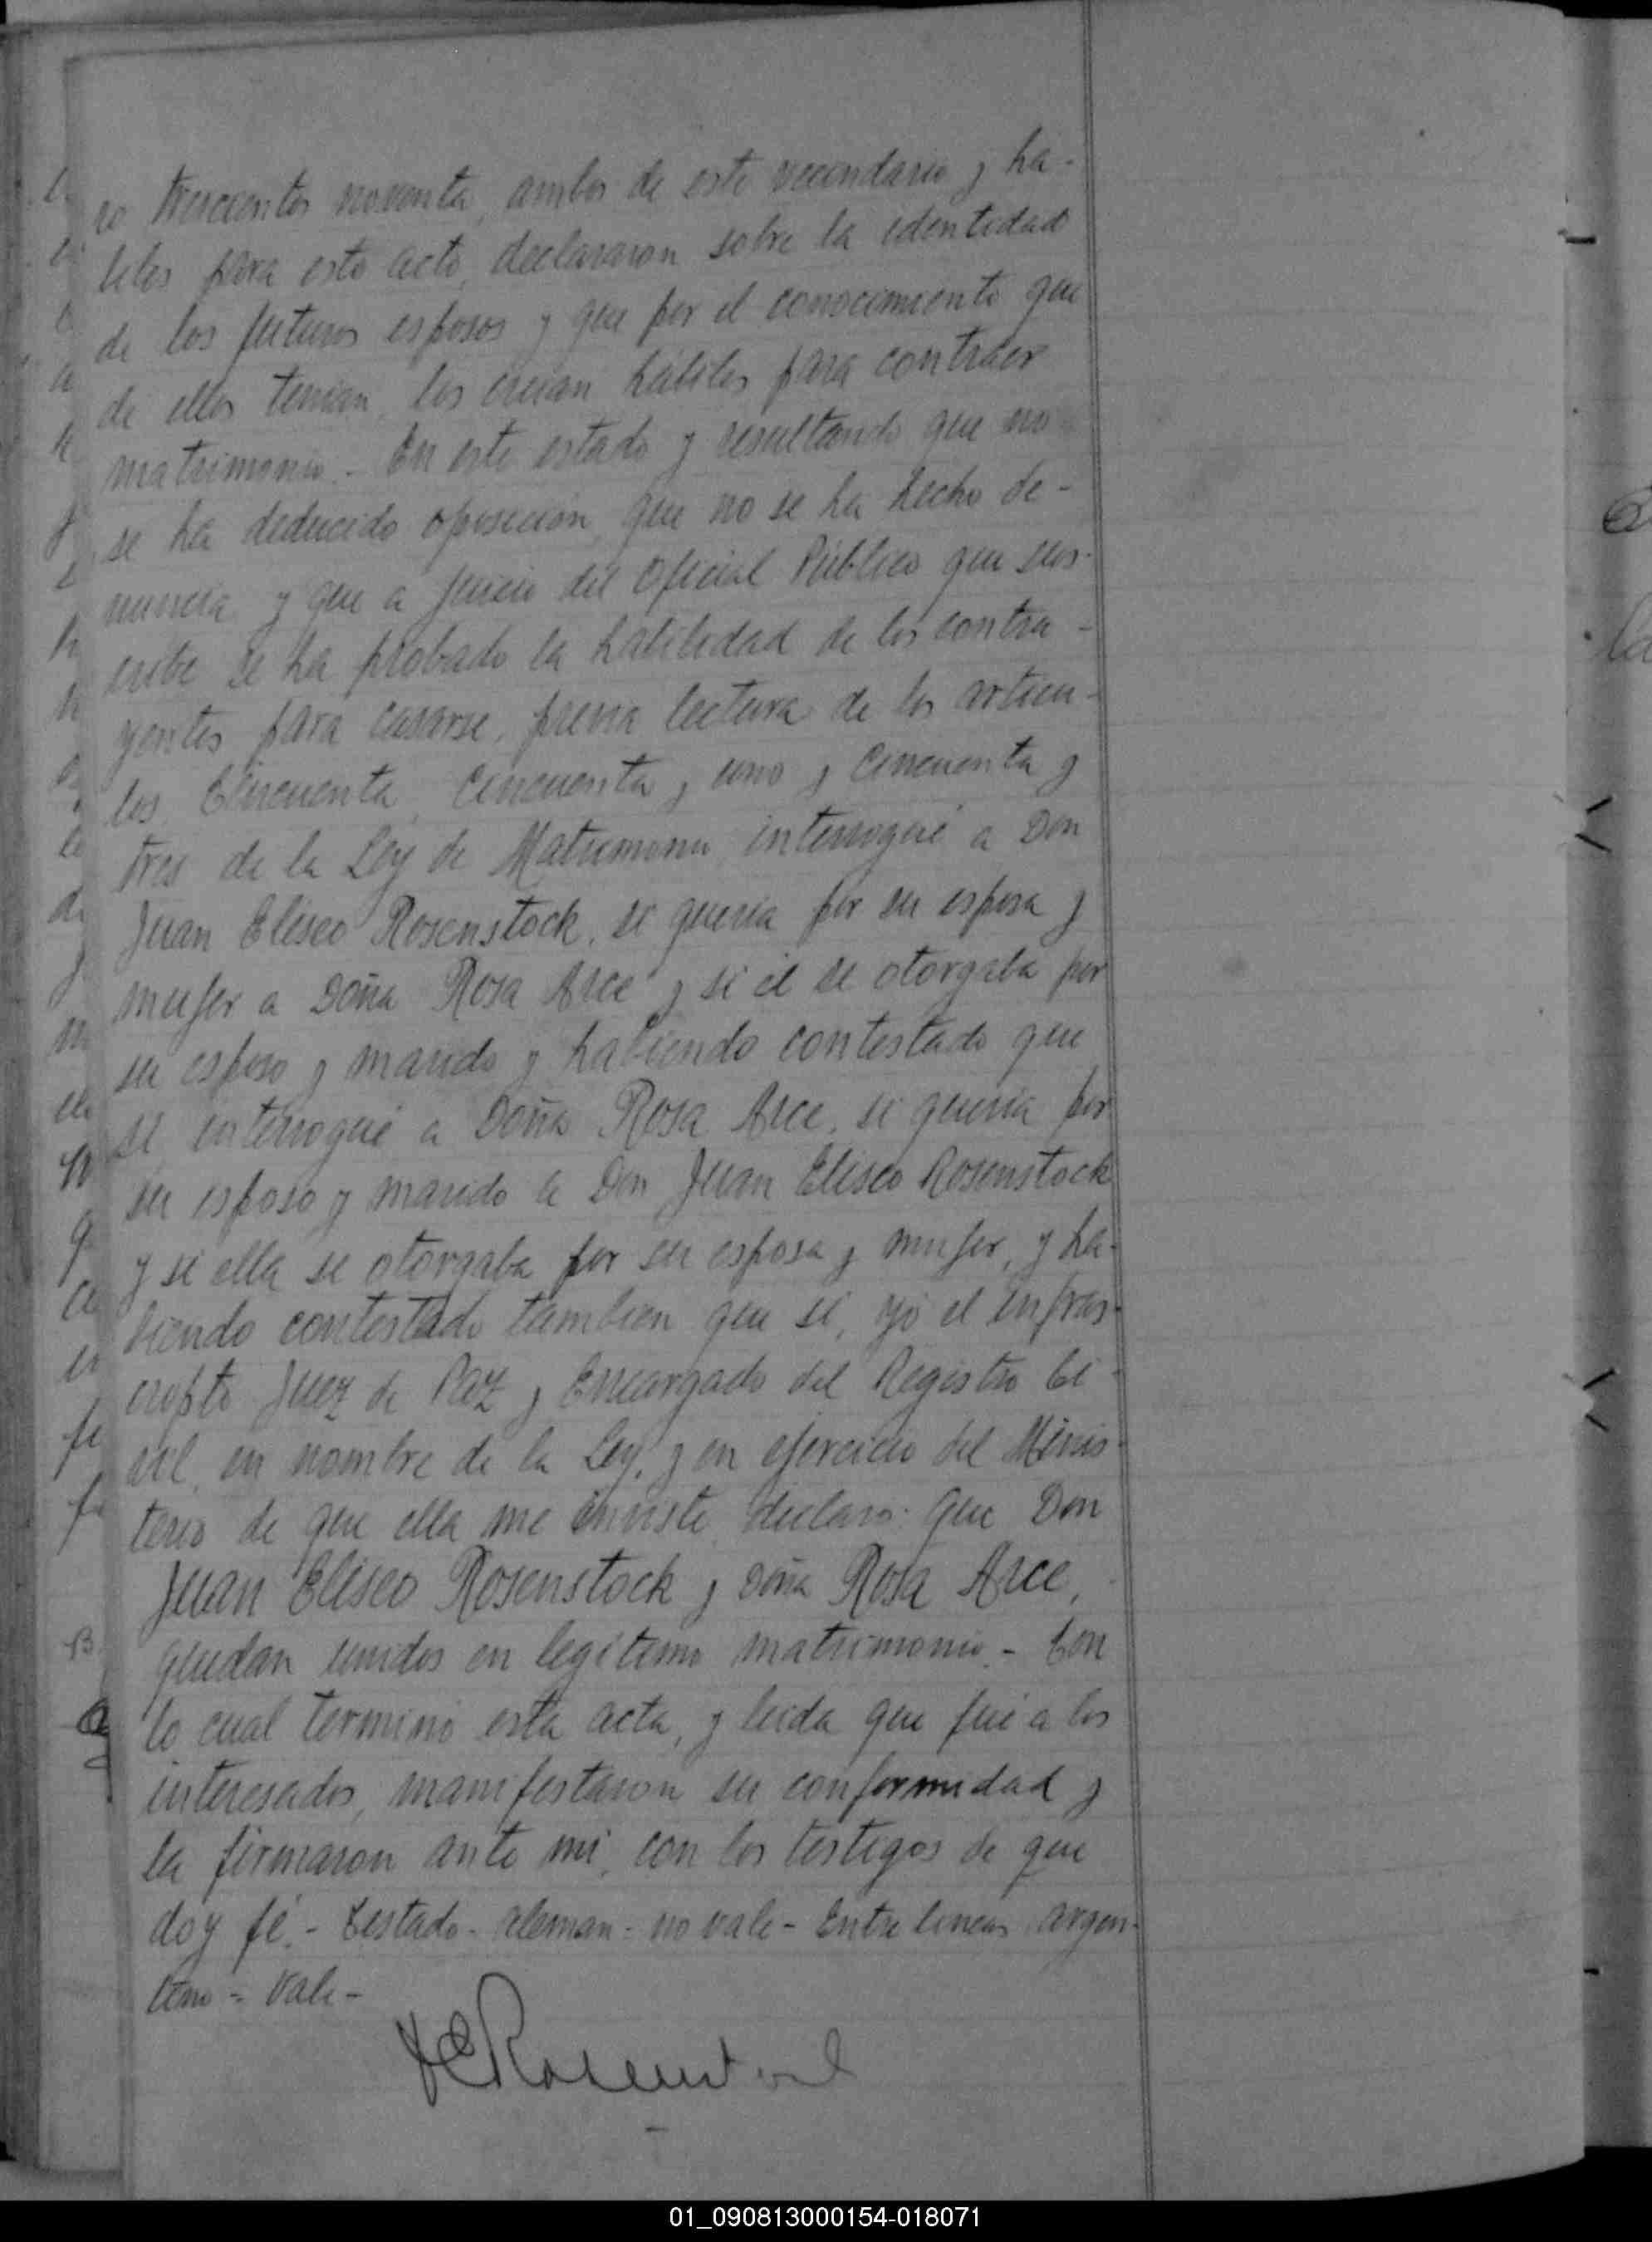 ro trescientos noventa, ambos de este vecindario y há-
biles para este acto, declararon sobre la identidad
de los futuros esposos y que por el conocimiento que
de ellos tenian, los creian hábiles para contraer
matrimonio.- En este estado y resultando que no
se ha deducido oposición, que no se ha hecho de-
nuncia y que a juicio del Oficial Público que sus-
cribe se ha probado la habilidad de los contra-
yentes para casarse, previa lectura de los artícu-
los Cincuenta, Cincuenta y uno y Cincuenta y
tres de la Ley de Matrimonio interrogué a Don
Juan Eliseo Rosenstock, si queria por su esposa y
mujer a Doña Rosa Arce y si él se otorgaba por
su esposo y marido y habiendo contestado que
si interrogué a Doña Rosa Arce, si queria por
su esposo y marido a Don Juan Eliseo Rosenstock
y si ella se otorgaba por su esposa y mujer, y ha-
biendo contestado tambien que si, yó el infras-
cripto Juez de Paz y Encargado del Registro Ci-
vil, en nombre de la Ley, y en ejercicio del Minis-
terio de que ella me inviste declaro: Que Don
Juan Eliseo Rosenstock y Doña Rosa Arce,
quedan unidos en legítimo matrimonio.- Con
lo cual terminó esta acta, y leida que fué a los
interesados, manifestaron su conformidad y
la firmaron ante mí, con los testigos de que
doy fé.- Testado- aleman- no vale- Entre lineas argen-
tino- Vale-
01_090813000154-018071